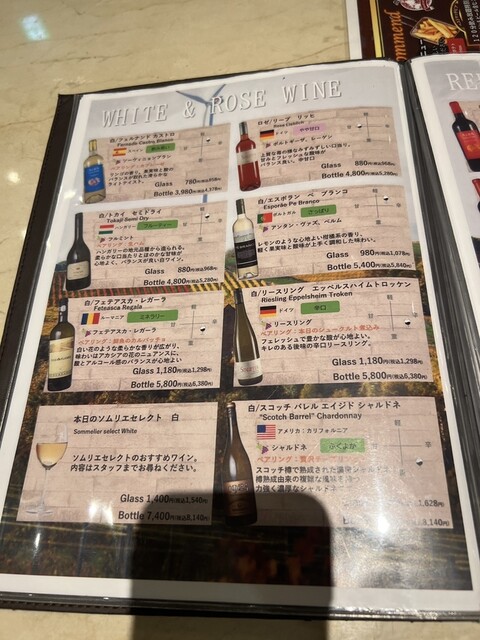 WHITE & ROSE WINE
白/フェルナンド カストロ
Fernado Castro Blanco
スペイン
ワインの渋く、果実味と酸の
バランスが取れた滑らかな
ライトテイスト。
Glass 780円(税込858円)
Bottle 3,980円(税込4,378円)
ロゼ/リープ リッヒ
Rose Lieblich
ドイツ
やや甘口
ポルトギーザ、ヒーゲン
上質な苺の様なみずみずしい口当り。
甘みとフレッシュな酸味が
バランス良い、中甘口
Glass 880円(税込968円)
Bottle 4,800円(税込5,280円)
白/トカイ セミドライ
Tokaji Semi Dry
ハンガリー
フルーティー
フルミント
ハンガリーの地元品種から造られる、
柔らかな口当たりとほのかな甘味が
心地よく、バランスが良い白ワイン。
Glass 880円(税込968円)
Bottle 4,800円(税込5,280円)
白/エスポラン ペ ブランコ
Esporão Pe Branco
ポルトガル
さっぱり
アンタン・ヴァズ、ペルム
レモンのような心地よい柑橘系の香り、
軽く果実味と酸味が上手く調和した味わい。
Glass 980円(税込1,078円)
Bottle 5,400円(税込5,840円)
白/フェテアスカ・レガーラ
Feteasca Regala
ルーマニア
ミネラリー
フェテアスカ・レガーラ
ペアリング:鮮魚のカルパッチョ
白い花のような柔らかな香りが広がり、
味わいはアカシアの花のニュアンスに、
酸とアルコール感のバランスが心地よい
Glass 1,180円(税込1,298円)
Bottle 5,800円(税込6,380円)
白/リースリング エッペルスハイムトロッケン
Riesling Eppelsheim Troken
ドイツ
辛口
リースリング
ペアリング:本日のシュークルト煮込み
フレッシュで豊かな酸が心地よい。
キレのある後味の辛口リースリング。
Glass 1,180円(税込1,298円)
Bottle 5,800円(税込6,380円)
本日のソムリエセレクト 白
Sommelier select White
ソムリエのおすすめワイン。
内容はスタッフまでお尋ねください。
Glass 1,400円(税込1,540円)
Bottle 7,400円(税込8,140円)
白/スコッチ バレル エイジド シャルドネ
"Scotch Barrel" Chardonnay
アメリカ・カリフォルニア
シャルドネ
ふくよか
スコッチ樽で熟成された濃厚シャルドネ
樽熟成由来の複雑な風味を持つ
力強く濃厚なシャルドネ
1,628円)
8,140円)
ommend
RE